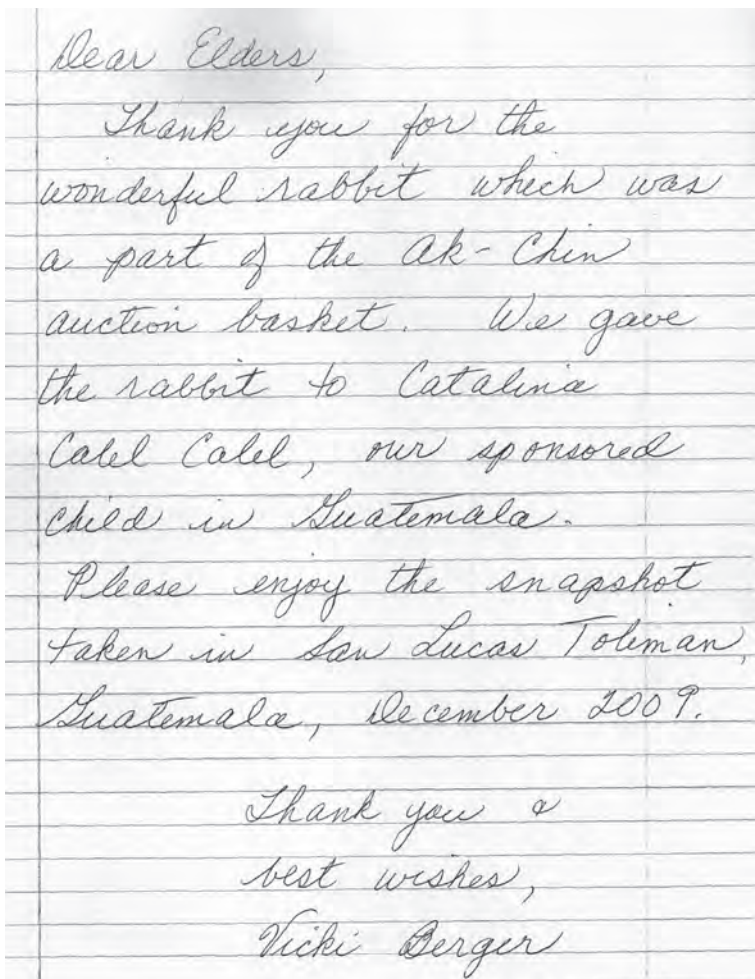 Dear Elders,
Thank you for the
wonderful rabbit which was
a part of the Ak-Chin
auction basket. We gave
the rabbit to Catalina
Calel Calel, our sponsored
child in Guatemala.
Please enjoy the snapshot
taken in San Lucas Toliman,
Guatemala, December 2009.
Thank you &
best wishes,
Vicki Berger